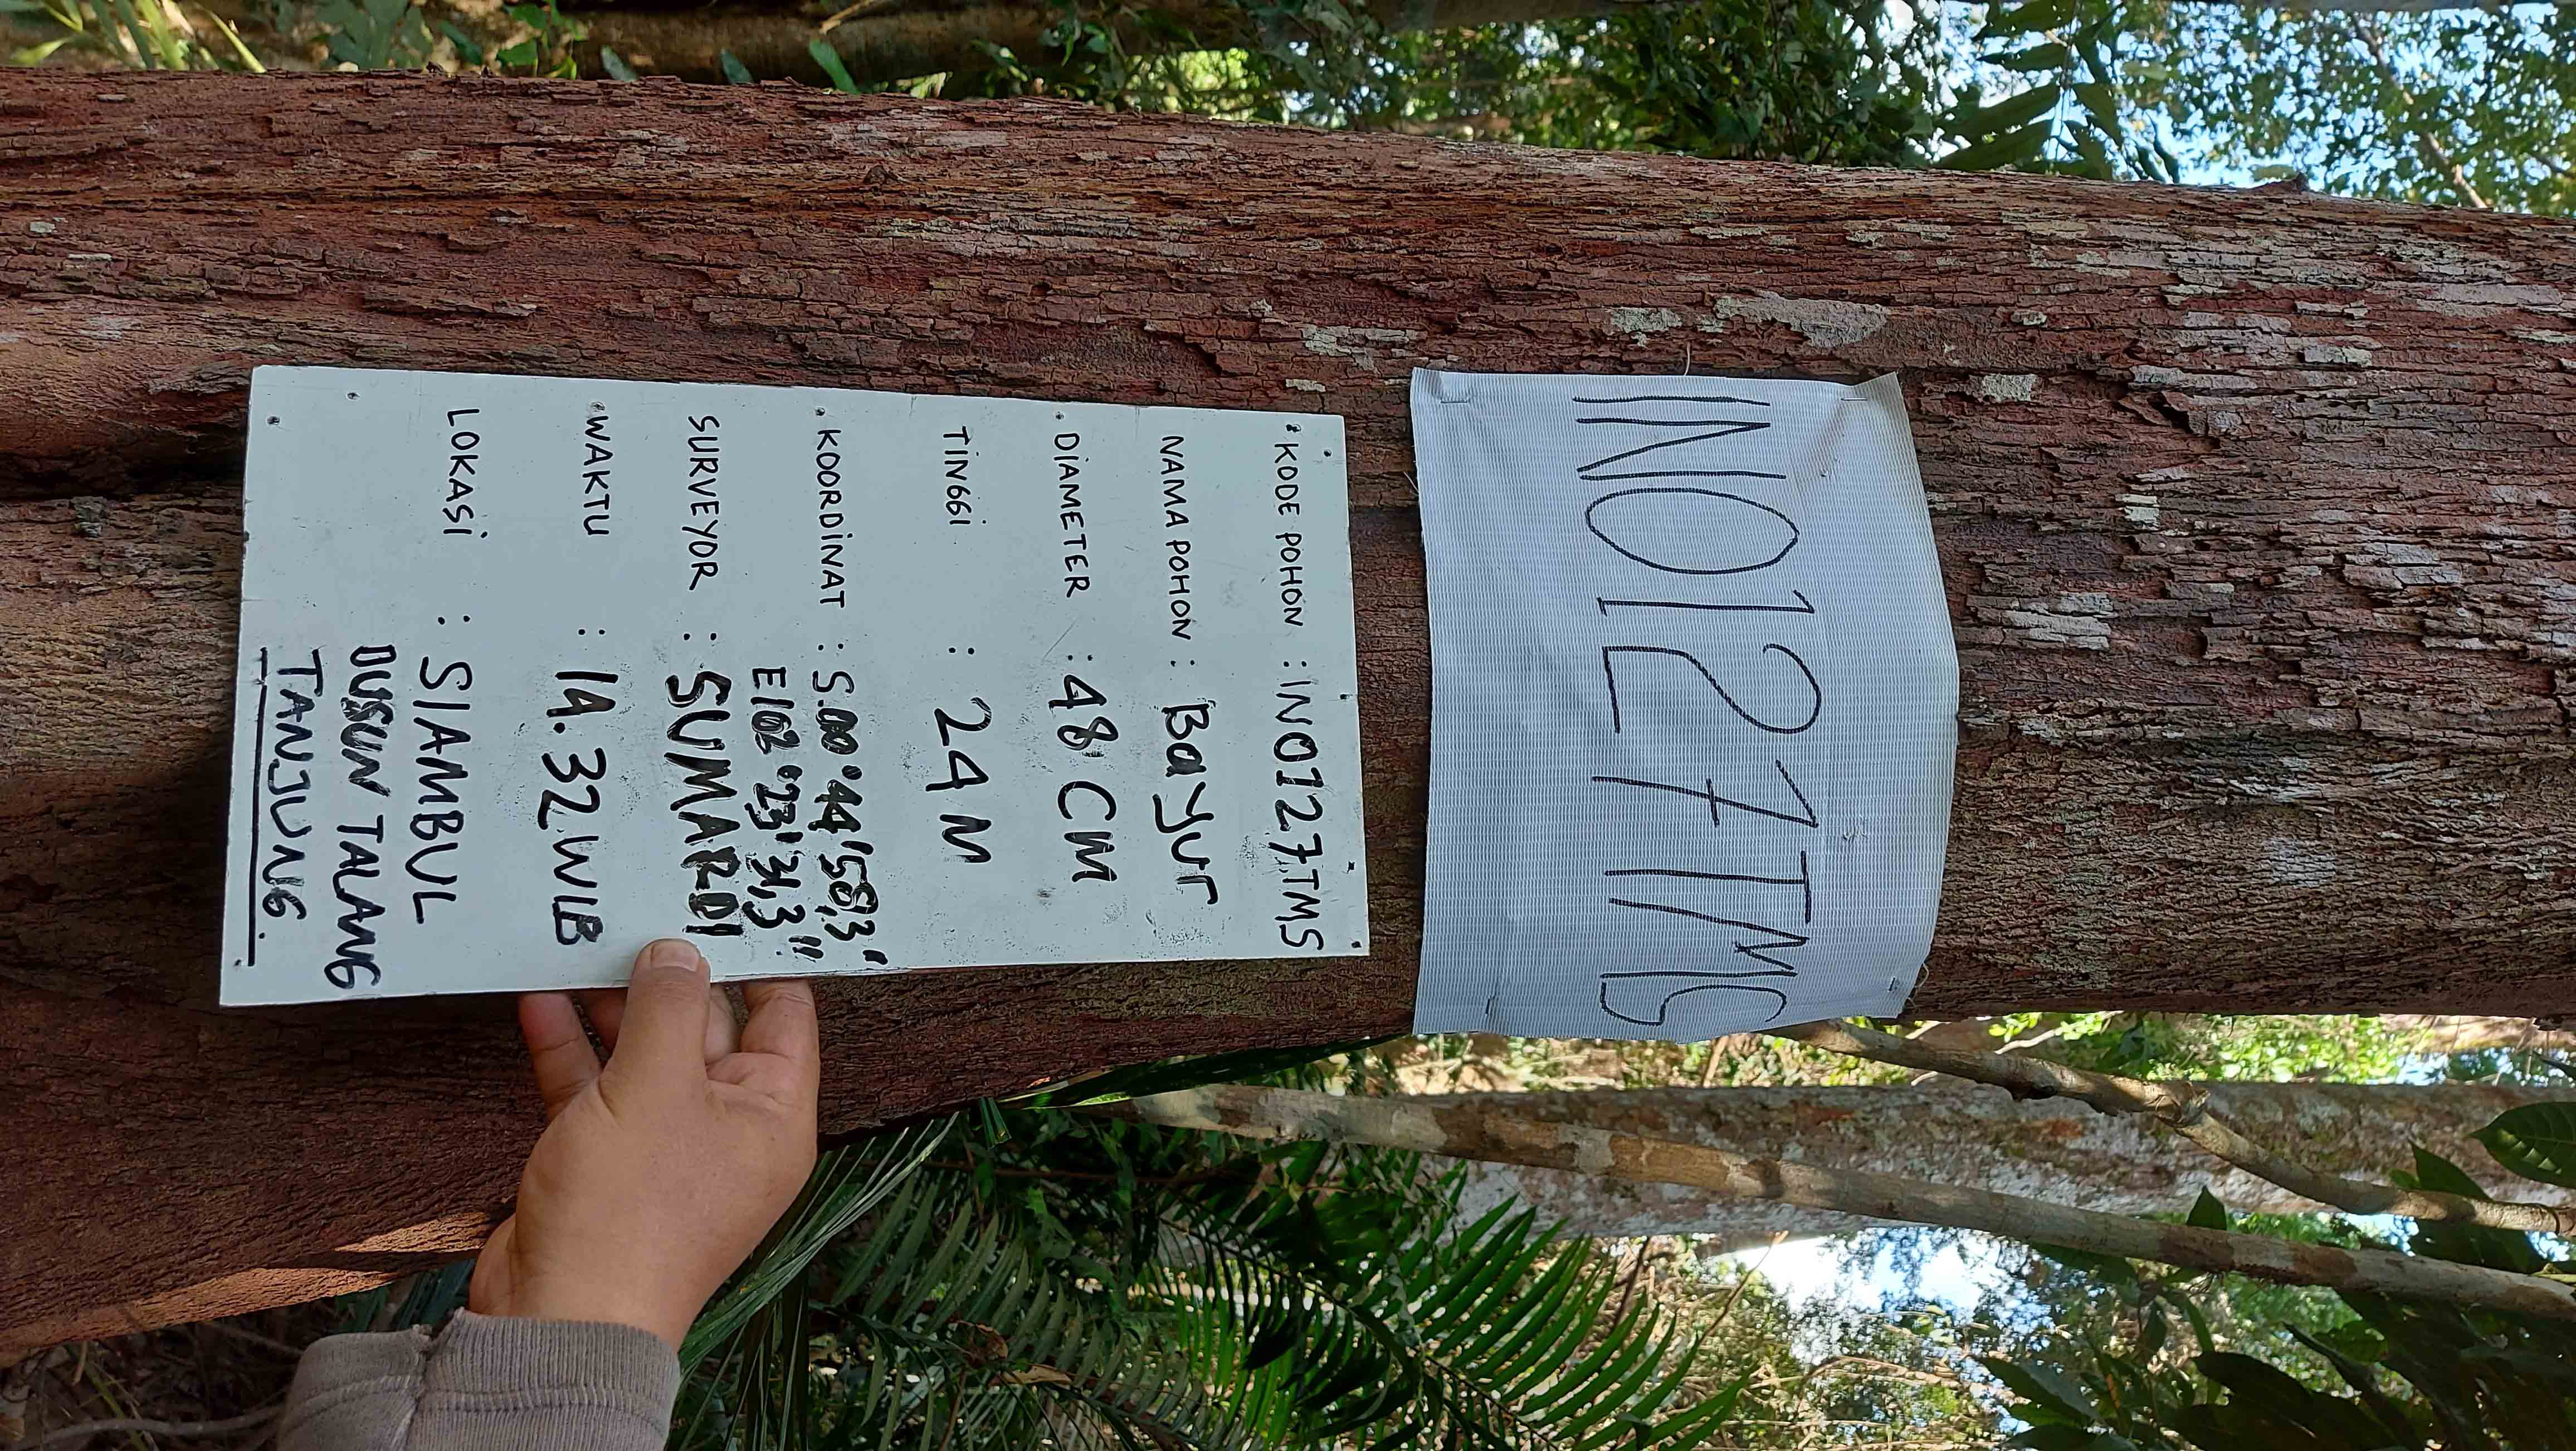 IN0127TMS
KODE POHON : IN0127TMS
NAMA POHON : Bayur
DIAMETER : 48 CM
TINGGI : 24 M
KOORDINAT : S.00°44'58,3"
E102°23'31,3"
SURVEYOR : SUMARDI
WAKTU : 14.32 WIB
LOKASI : SIAMBUL
DUSUN TALANG
TANJUNG.